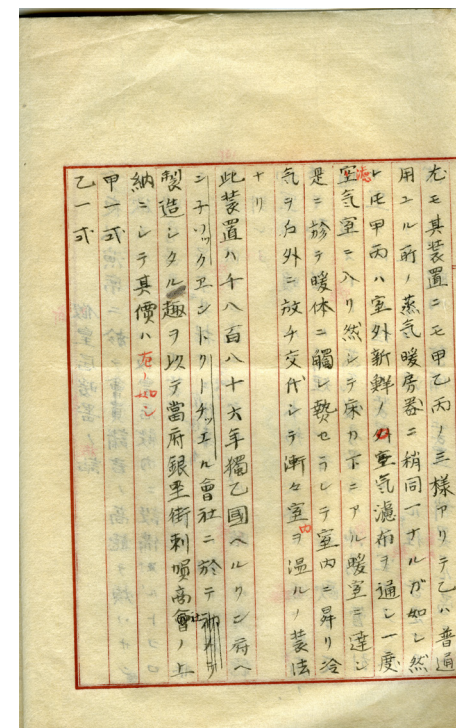 尤モ其装置ニモ甲乙丙ノ三様アリテ乙ハ普通
用ユル所ノ蒸気暖房器ニ稍同一ナルガ如シ然
レモ甲丙ハ室外新鮮ノ空気濾布ヲ通シ一度
濾空気室ニ入リ然シテ床力下ニアル暖室ニ達シ
是ニ於テ暖体ニ觸レ熱セラレテ室内ニ昇リ冷
気ヲ戸外ニ放チ交代シテ漸々室内ヲ温ルノ装法
ナリ
此装置ハ千八百八十六年獨乙國ベルリン府ヘ
ンチリックエンドクトッエル會社ニ於テ
製造シタル趣ヲ以テ當府銀座街刺賀商會ノ上
納ニシテ其價ハ左ノ如シ
甲一式
乙一式